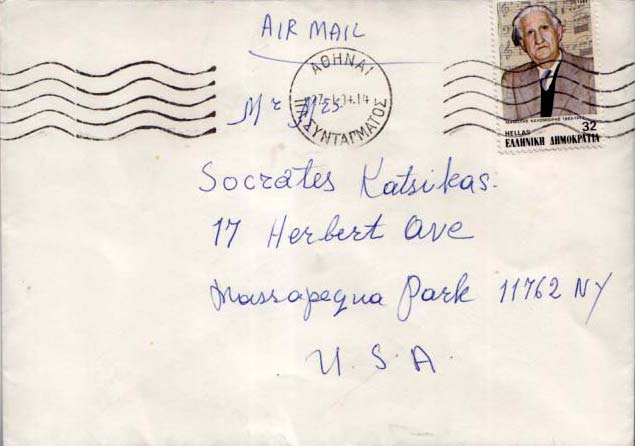 AIR MAIL
ΑΘΗΝΑΙ
ΣΥΝΤΑΓΜΑΤΟΣ
Mr Mrs.
HELLAS 32
ΕΛΛΗΝΙΚΗ ΔΗΜΟΚΡΑΤΙΑ
Socrates Katsikas.
17 Herbert Ave
Massapequa Park 11762 NY
U. S. A.